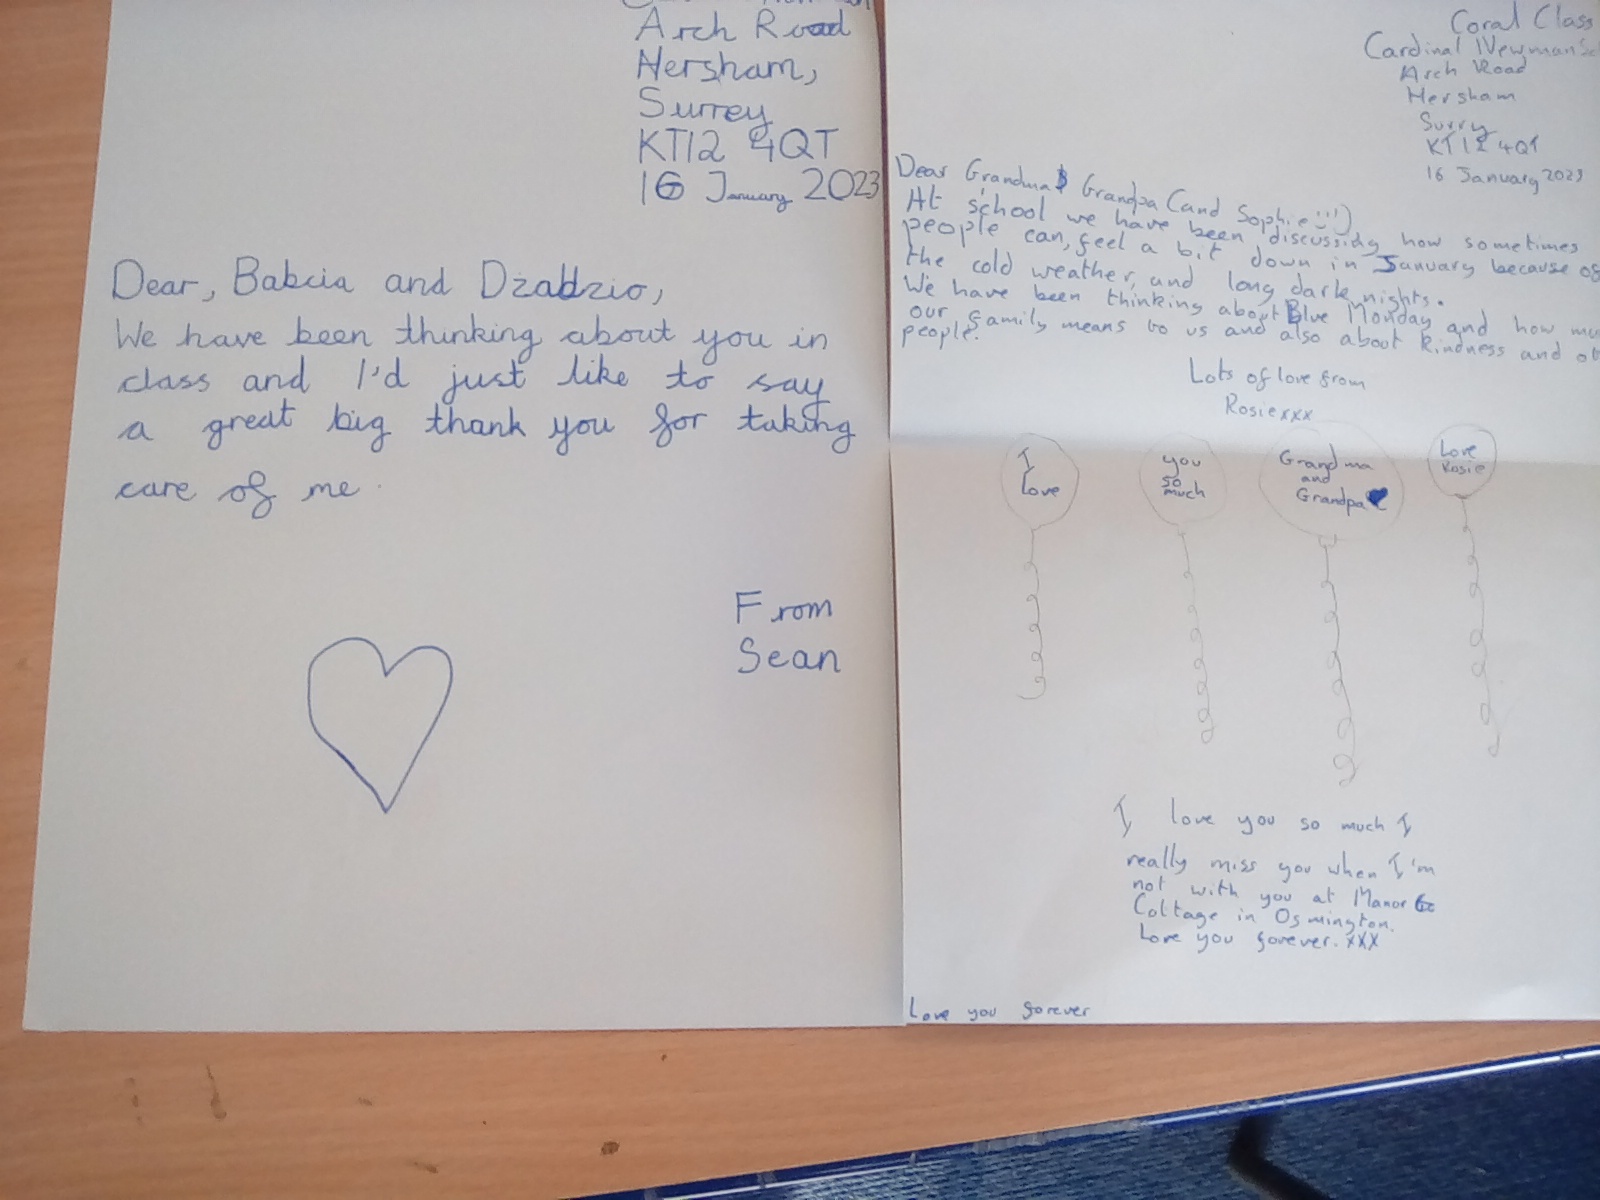 Arch Road
Hersham,
Surrey
KT12 4QT
16 January 2023
Dear, Babcia and Dziadzio,
We have been thinking about you in
class and I'd just like to say
a great big thank you for taking
care of me.
From
Sean
Coral Class
Cardinal Newman Sc
Arch Road
Hersham
Surry
KT12 4QT
16 January 2023
Dear Grandma & Grandpa (and Sophie!!!)
At school we have been discussidg how sometimes
people can, feel a bit down in January because of
the cold weather, and long dark nights.
We have been thinking about Blue Monday and how mu
our family means to us and also about kindness and ot
people.
Lots of love from
Rosie xxx
I
love
you
so
much
Grandma
and
Grandpa
Love
Rosie
I love you so much I
really miss you when I'm
not with you at Manor
Cottage in Osmington.
Love you forever. xxx
Love you forever